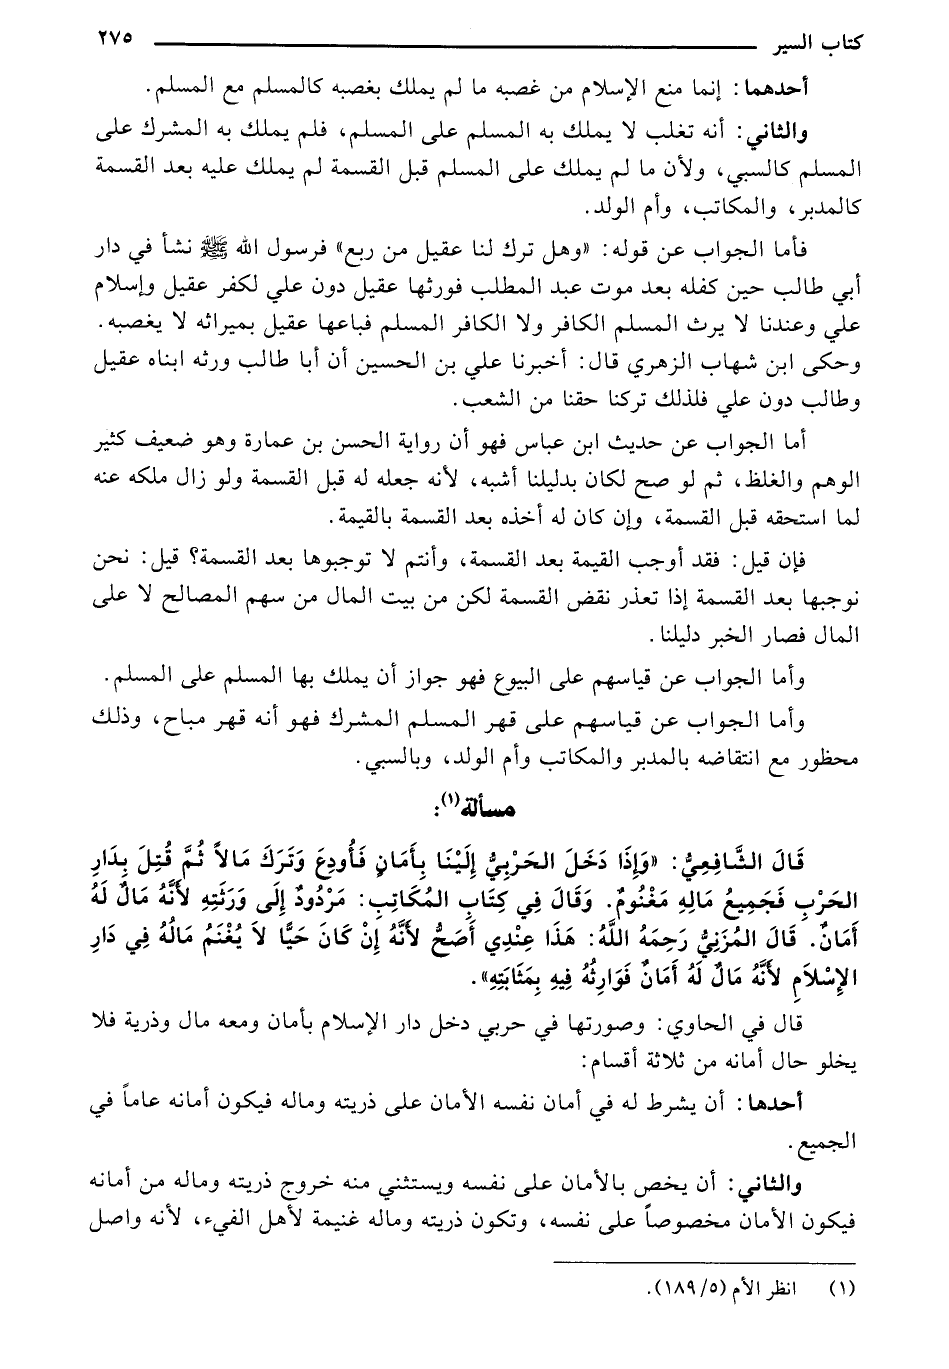 كتاب السير ٢٧٥
أحدهما: إنما منع الإسلام من غصبه ما لم يملك بغصبه كالمسلم مع المسلم.
والثاني: أنه تغلب لا يملك به المسلم على المسلم، فلم يملك به المشرك على
المسلم كالسبي، ولأن ما لم يملك على المسلم قبل القسمة لم يملك عليه بعد القسمة
كالمدبر، والمكاتب، وأم الولد.
فأما الجواب عن قوله: «وهل ترك لنا عقيل من ربع» فرسول الله ﷺ نشأ في دار
أبي طالب حين كفله بعد موت عبد المطلب فورثها عقيل دون علي لكفر عقيل وإسلام
علي وعندنا لا يرث المسلم الكافر ولا الكافر المسلم فباعها عقيل بميراثه لا يغصبه.
وحكى ابن شهاب الزهري قال: أخبرنا علي بن الحسين أن أبا طالب ورثه ابناه عقيل
وطالب دون علي فلذلك تركنا حقنا من الشعب.
أما الجواب عن حديث ابن عباس فهو أن رواية الحسن بن عمارة وهو ضعيف كثير
الوهم والغلظ، ثم لو صح لكان بدليلنا أشبه، لأنه جعله له قبل القسمة ولو زال ملكه عنه
لما استحقه قبل القسمة، وإن كان له أخذه بعد القسمة بالقيمة.
فإن قيل: فقد أوجب القيمة بعد القسمة، وأنتم لا توجبوها بعد القسمة؟ قيل: نحن
نوجبها بعد القسمة إذا تعذر نقض القسمة لكن من بيت المال من سهم المصالح لا على
المال فصار الخبر دليلنا.
وأما الجواب عن قياسهم على البيوع فهو جواز أن يملك بها المسلم على المسلم.
وأما الجواب عن قياسهم على قهر المسلم المشرك فهو أنه قهر مباح، وذلك
محظور مع انتقاضه بالمدبر والمكاتب وأم الولد، وبالسبي.
مسألة(١):
قَالَ الشَّافِعِيُّ: «وَإِذَا دَخَلَ الحَرْبِيُّ إِلَيْنَا بِأَمَانٍ فَأُودِعَ وَتَرَكَ مَالاً ثُمَّ قُتِلَ بِدَارِ
الحَرْبِ فَجَمِيعُ مَالِهِ مَغْنُومٌ. وَقَالَ فِي كِتَابِ المُكَاتِبِ: مَرْدُودٌ إِلَى وَرَثَتِهِ لأَنَّهُ مَالٌ لَهُ
أَمَانٌ. قَالَ المُزَنِيُّ رَحِمَهُ اللَّهُ: هَذَا عِنْدِي أَصَحُّ لأَنَّهُ إِنْ كَانَ حَيًّا لاَ يُغْنَمُ مَالُهُ فِي دَارِ
الإِسْلاَمِ لأَنَّهُ مَالٌ لَهُ أَمَانٌ فَوَارِثُهُ فِيهِ بِمَثَابَتِهِ».
قال في الحاوي: وصورتها في حربي دخل دار الإسلام بأمان ومعه مال وذرية فلا
يخلو حال أمانه من ثلاثة أقسام:
أحدها: أن يشرط له في أمان نفسه الأمان على ذريته وماله فيكون أمانه عاماً في
الجميع.
والثاني: أن يخص بالأمان على نفسه ويستثني منه خروج ذريته وماله من أمانه
فيكون الأمان مخصوصاً على نفسه، وتكون ذريته وماله غنيمة لأهل الفيء، لأنه واصل
(١) انظر الأم (١٨٩/٥).